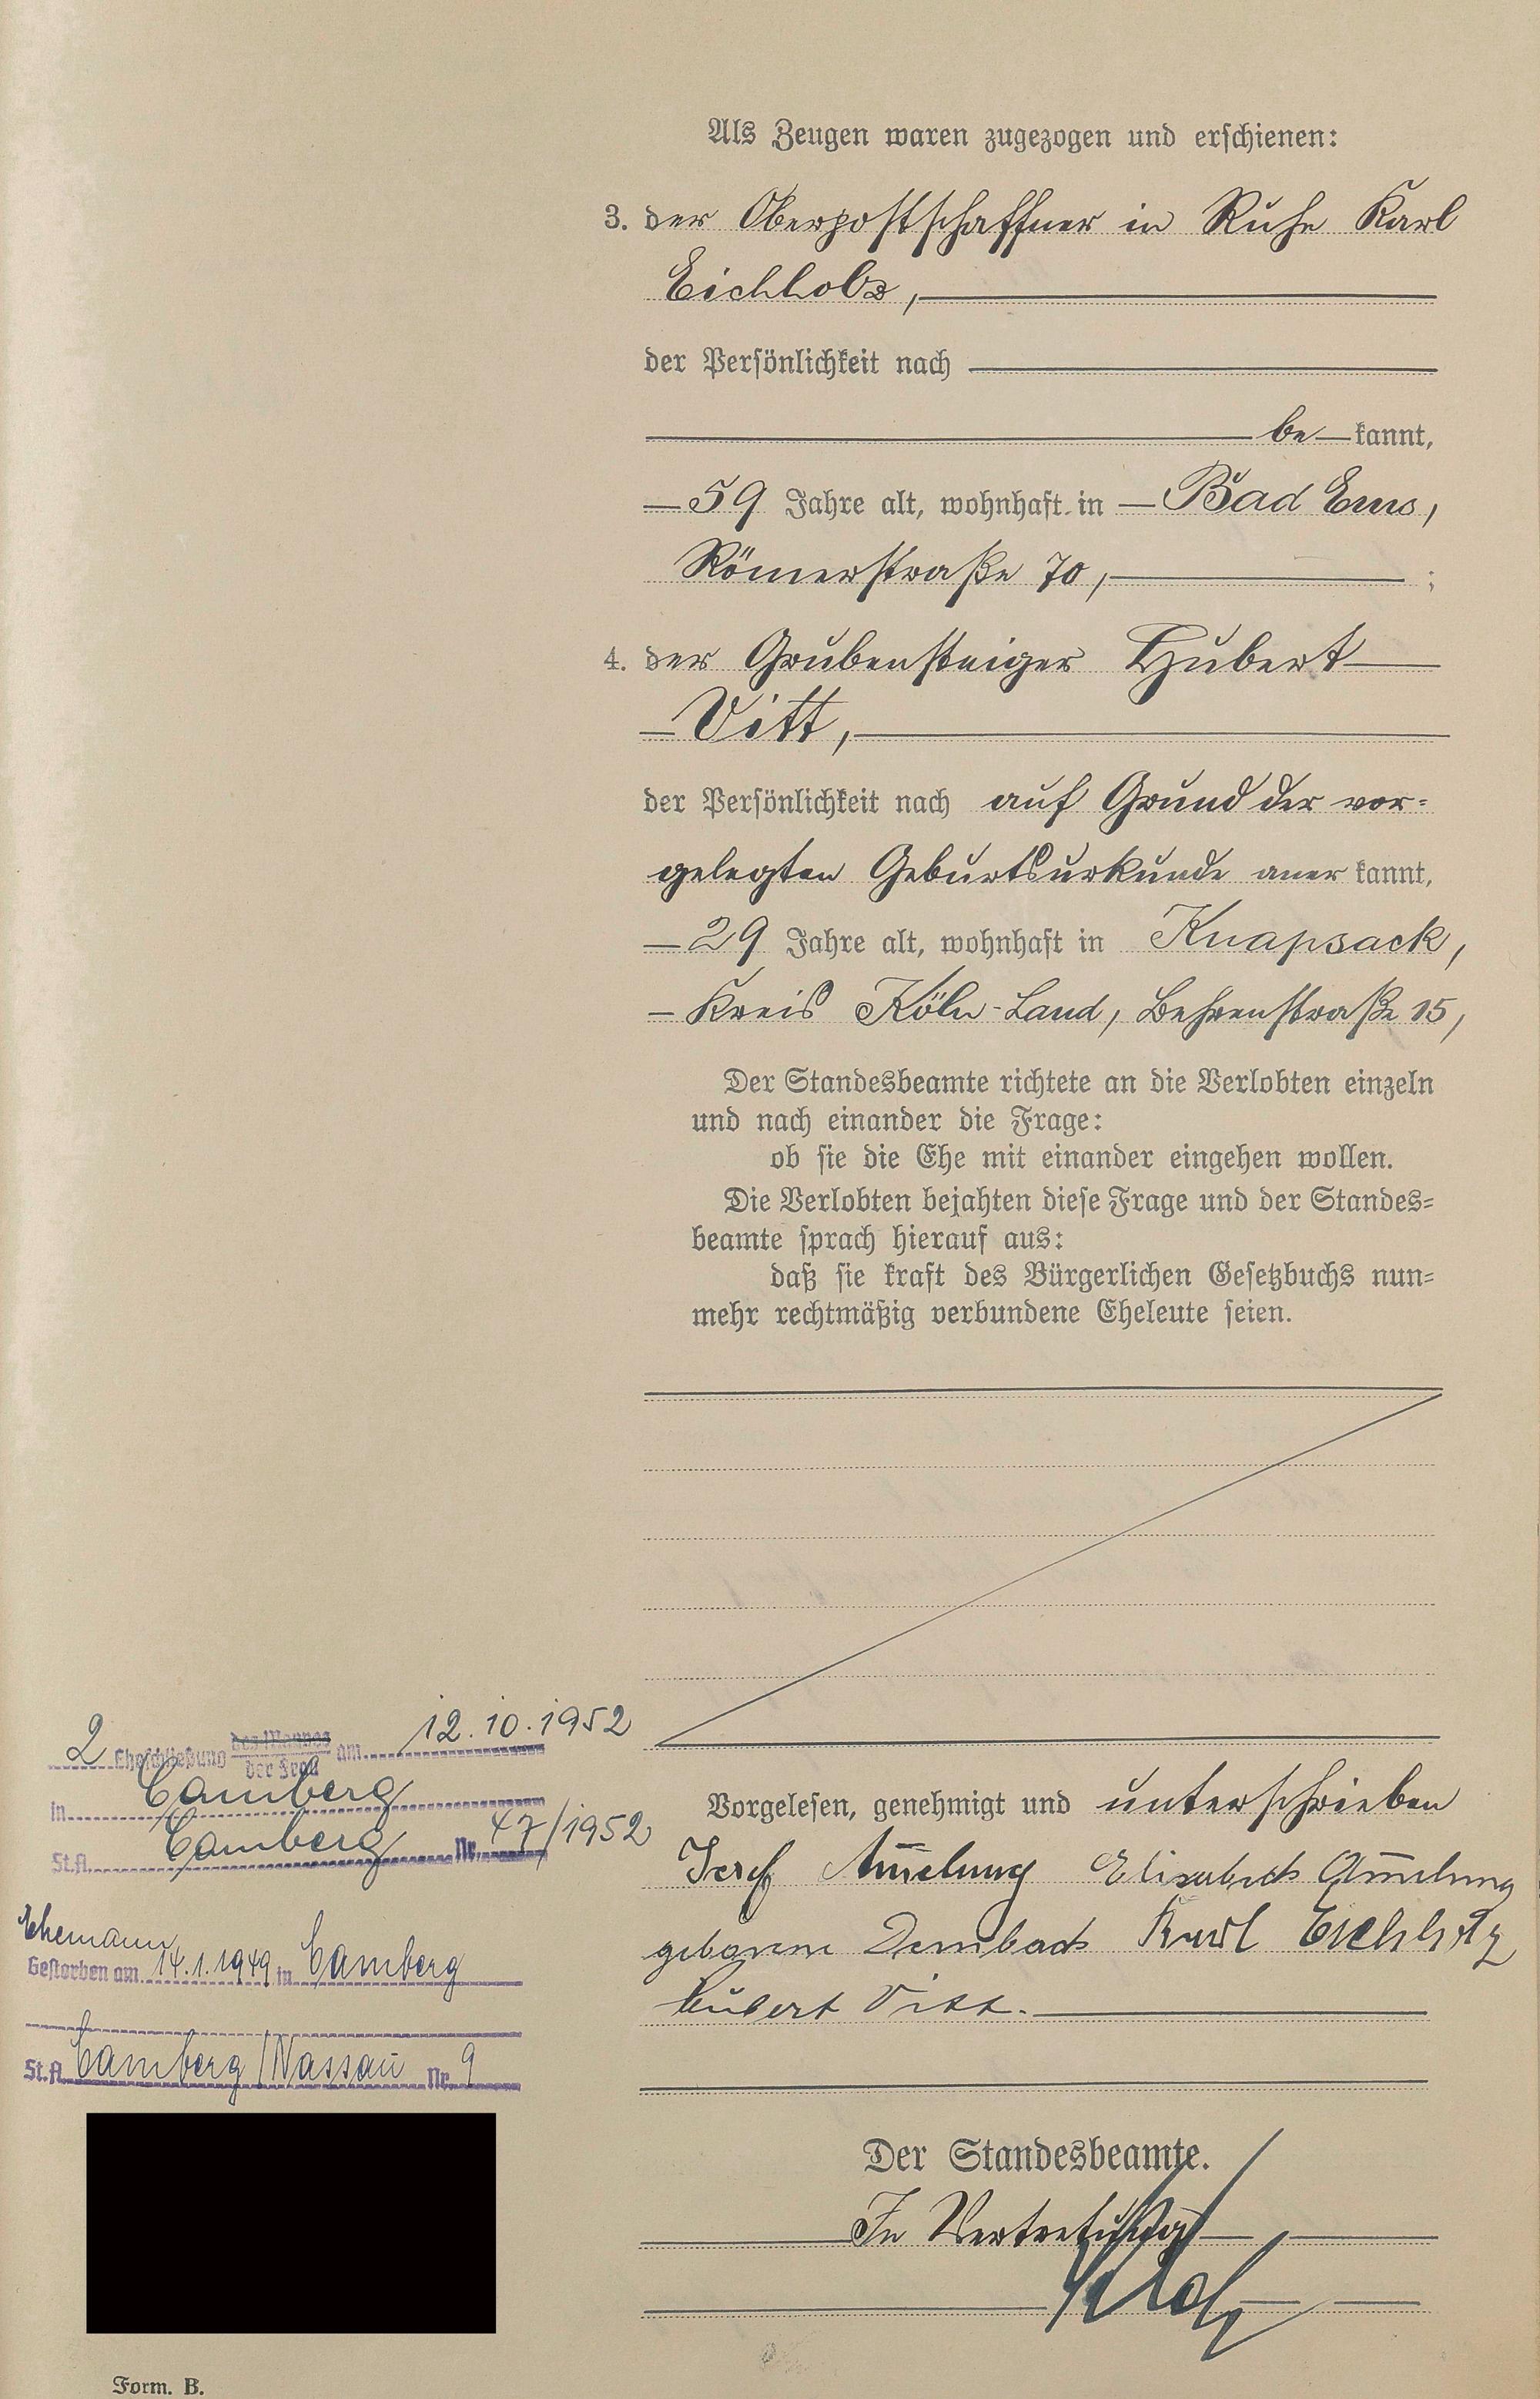 Als Zeugen waren zugezogen und erschienen:
3. der Oberpostschaffner in Ruhe Karl
Eichholz,
der Persönlichkeit nach
be kannt,
59 Jahre alt, wohnhaft in Bad Ems,
Römerstraße 70, ;
4. der Grubensteiger Hubert
Vitt,
der Persönlichkeit nach auf Grund der vor=
gelegten Geburtsurkunde aner kannt,
29 Jahre alt, wohnhaft in Knapsack,
Kreis Köln-Land, Behrenstraße 15,
Der Standesbeamte richtete an die Verlobten einzeln
und nach einander die Frage:
ob sie die Ehe mit einander eingehen wollen.
Die Verlobten bejahten diese Frage und der Standes=
beamte sprach hierauf aus:
daß sie kraft des Bürgerlichen Gesetzbuchs nun=
mehr rechtmäßig verbundene Eheleute seien.
Vorgelesen, genehmigt und unterschrieben
Josef Am̅elung Elisabeth Am̅elung
geborene Dernbach Karl Eichholz
Hubert Vitt.
Der Standesbeamte.
In Vertretung
2 Eheschließung des Mannes der Frau am 12.10.1952
in Camberg
St.A. Camberg Nr. 47/1952
Ehemann
Gestorben am 14.1.1949 in Camberg
St.A. Camberg/Nassau Nr. 9
Form. B.